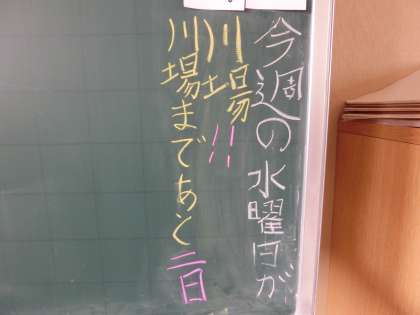 今週の水曜日が
川場!!
川場まであと二日